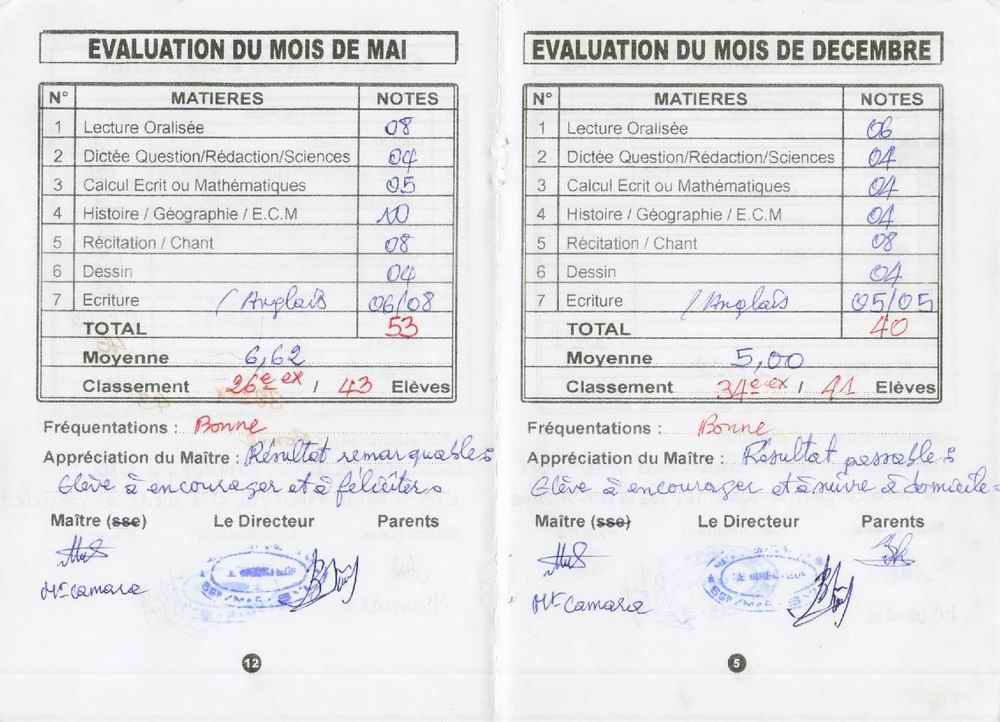 EVALUATION DU MOIS DE MAI
N° MATIERES NOTES
1 Lecture Oralisée 08
2 Dictée Question/Rédaction/Sciences 04
3 Calcul Ecrit ou Mathématiques 05
4 Histoire / Géographie / E.C.M 10
5 Récitation / Chant 08
6 Dessin 04
7 Ecriture / Anglais 06/08
TOTAL 53
Moyenne 6,62
Classement 26e ex / 43 Elèves
Fréquentations : Bonne
Appréciation du Maître : Résultat remarquable
Elève à encourager et à féliciter.
Maître (sse) Le Directeur Parents
Mr Camara
12
EVALUATION DU MOIS DE DECEMBRE
N° MATIERES NOTES
1 Lecture Oralisée 06
2 Dictée Question/Rédaction/Sciences 04
3 Calcul Ecrit ou Mathématiques 04
4 Histoire / Géographie / E.C.M 04
5 Récitation / Chant 08
6 Dessin 04
7 Ecriture / Anglais 05/05
TOTAL 40
Moyenne 5,00
Classement 34e ex / 41 Elèves
Fréquentations : Bonne
Appréciation du Maître : Résultat passable
Elève à encourager et à suivre à domicile.
Maître (sse) Le Directeur Parents
Mr Camara
5